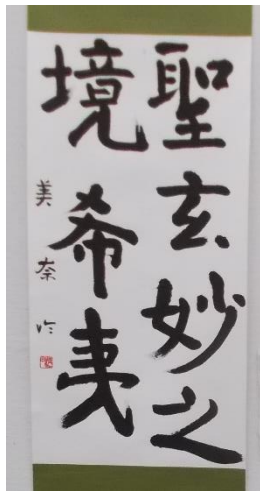 聖玄妙之
境希夷
美奈